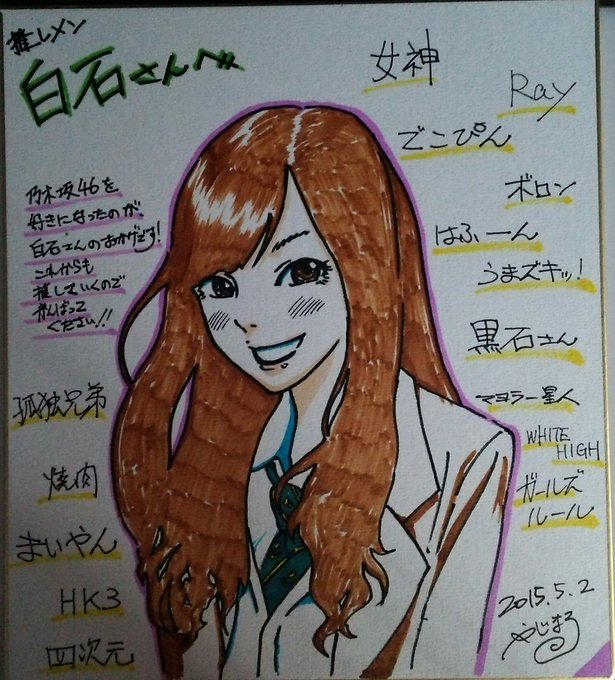 推しメン
白石さんへ
乃木坂46を
好きになったのが、
白石さんのおかげです!
これからも
推していくので
がんばって
ください!!
孤独兄弟
焼肉
まいやん
HK3
四次元
女神
Ray
でこぴん
ボロン
はふーん
うまズキッ!
黒石さん
マヨラー星人
WHITE
HIGH
ガールズ
ルール
2015.5.2
やじまる